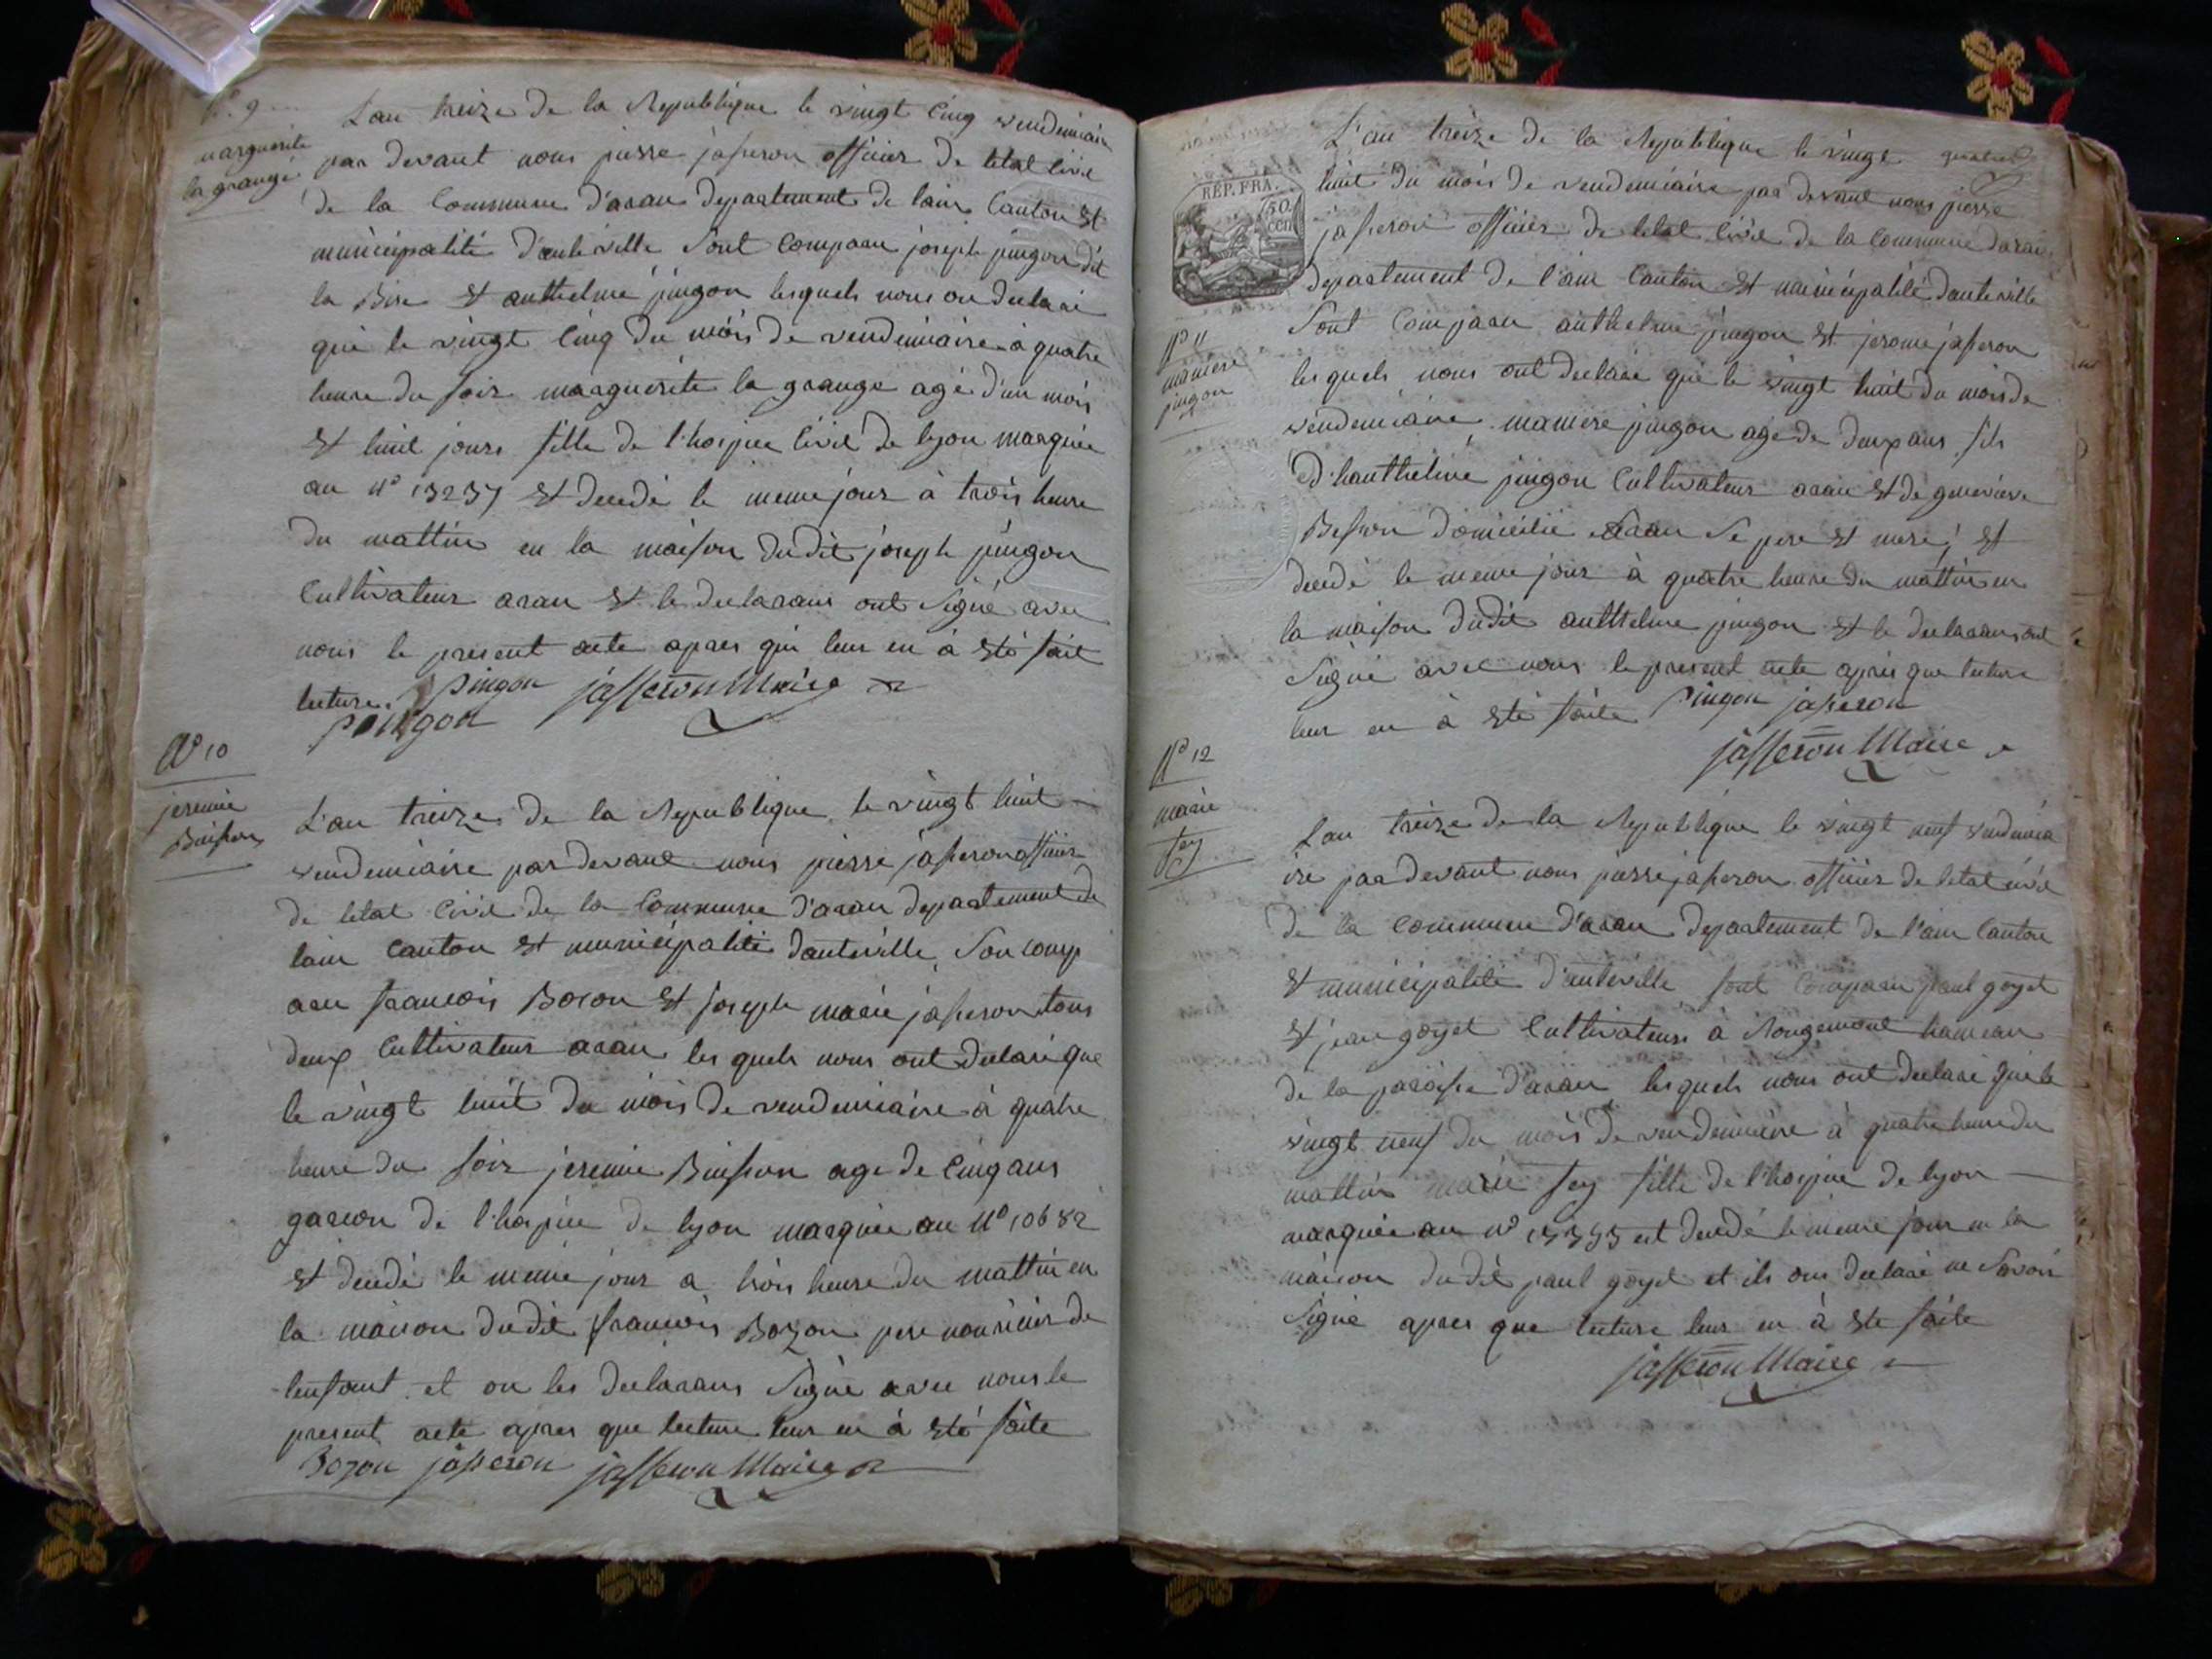 N° 9
marguerite
la grange
L'an treize de la Republique le vingt cinq vendemiaire
par devant nous pierre jasseron officier de letat civil
de la Commune d'aran departement de lain Canton et
municipalité d'auteville sont comparu joseph pingon dit
la Bise et anthelme pingon lesquels nous on declaré
que le vingt cinq du mois de vendemiaire à quatre
heure du soir marguerite la grange agé d'un mois
et huit jours fille de l'hospice civil de lyon marquée
au N° 13237 et decedé le meme jour à trois heure
du mattin en la maison dudit joseph pingon
Cultivateur aran et le declarans ont signé avec
nous le present acte apres qui leur en à eté fait
lecture. pingon jasseron Maire
pingon
N° 10
jeremie
Buisson
L'an treize de la Republique le vingt huit
vendemiaire par devant nous pierre jasseron officier
de letat civil de la Commune d'aran departement de
lain Canton et municipalité dauteville son comp
aru francois Bozon et joseph marie jasseron tous
deux Cultivateur aran les quels nous ont declaré que
le vingt huit du mois de vendemiaire à quatre
heure du soir jeremie Buisson age de cinq ans
garcon de l'hospice de lyon marquée au N° 10682
et decedé le meme jour a trois heure du mattin en
la maison dudit francois Bozon pere nouricier de
lenfant et on les declarans signé avec nous le
present acte apres que lecture leur en à eté faite
Bozon jasseron jasseron Maire
L'an treize de la Republique le vingt quatre
REP. FRA.
50
cen
huit du mois de vendemiaire par devant nous pierre
jasseron officier de letat civil de la Commune daran
departement de l'ain Canton et municipalité dauteville
N° 11
mamere
pingon
sont comparu anthelme pingon et jerome jasseron
lesquels nous ont declaré que le vingt huit du mois de
vendemiaire mamere pingon age de deux ans fils
d'hanthelme pingon Cultivateur aran et de genevieve
Besson domicilié aran se pere et mere; et
decedé le meme jour à quatre heure du mattin en
la maison dudit anthelme pingon et le declarans ont
signé avec nous le present acte après que lecture
leur en à eté faite pingon jasseron
jasseron Maire
N° 12
marie
fey
L'an treize de la Republique le vingt neuf vendemia
ire par devant nous pierre jasseron officier de letat civil
de la commune d'aran departement de l'ain Canton
et municipalité d'auteville sont comparu paul goyet
et jean goyet Cultivateurs à Rougemont hameau
de la paroisse d'aran lesquels nous ont declaré que le
vingt neuf du mois de vendemiaire à quatre heure du
mattin marie fey fille de l'hospice de lyon
marquée au n° 13393 est decedé le meme jour en la
maison dudit paul goyet et ils ons declaré ne savoir
signé apres que lecture leur en à ete faite
jasseron Maire